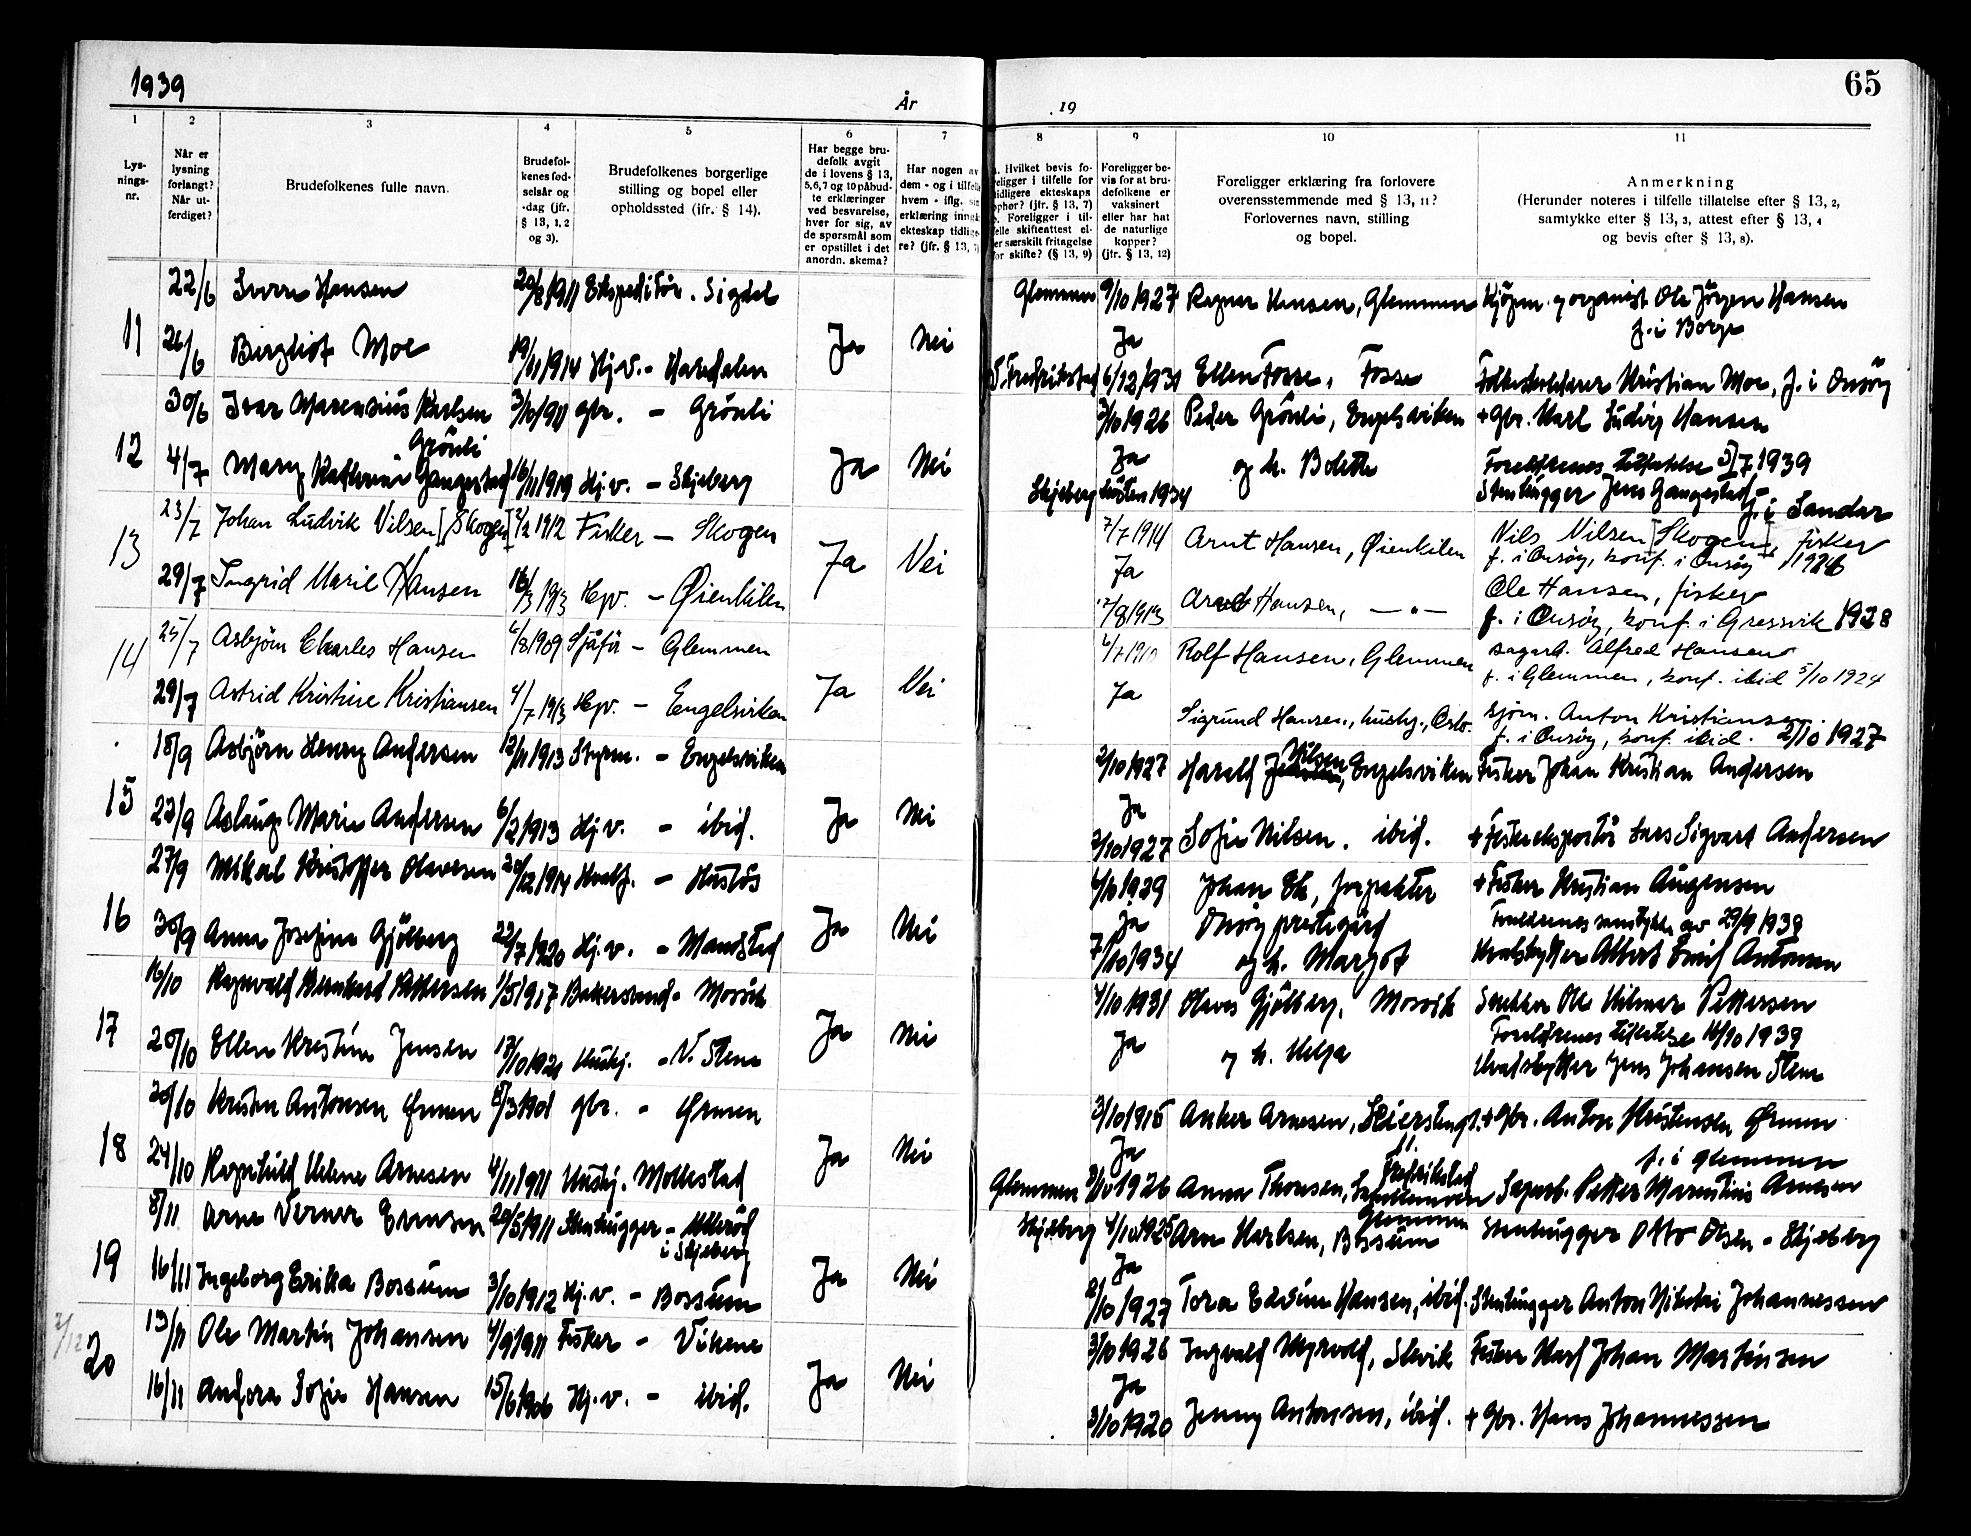 1939
År
19
65
1
2
3
4
5
6
7
8
9
10
11
Lys-
nings-
nr.
Når er
lysning
forlangt?
Når ut-
ferdiget?
Brudefolkenes fulle navn.
Brudefol-
kenes fød-
selsår og
-dag (jfr.
§ 13, 1, 2
og 3).
Brudefolkenes borgerlige
stilling og bopel eller
opholdssted (ifr. § 14).
Har begge bru-
defolk avgit
de i lovens § 13,
5, 6, 7 og 10 påbud-
te erklæringer
ved besvarelse,
hver for sig, av
de spørsmål som
er opstillet i det
anordn. skema?
Har nogen av
dem - og i tilfelle
hvem - iflg. sin
erklæring inngått
ekteskap tidlige-
re? (jfr. § 13, 7)
Hvilket bevis fo-
religger i tilfelle for
tidligere ekteskaps
ophør? (jfr. § 13, 7)
Foreligger i til-
felle skifteattest el-
ler særskilt fritagelse
for skifte? (§ 13, 9)
Foreligger be-
vis for at bru-
defolkene er
vaksinert
eller har hat
de naturlige
kopper?
(jfr. § 13, 12)
Foreligger erklæring fra forlovere
overensstemmende med § 13, 11?
Forlovernes navn, stilling
og bopel.
Anmerkning
(Herunder noteres i tilfelle tillatelse efter § 13, 2,
samtykke efter § 13, 3, attest efter § 13, 4
og bevis efter § 13, 8).
22/6 Sverre Hansen 20/8 1911 Ekspeditør. Sigdal Glemmen 9/10 1927 Ragnar Hansen, Glemmen Kjøpm. og organist Ole Jörgen Hansen
f. i Borge
11 26/6 Bergliot Moe 19/11 1914 Hj.v. - Ja Nei Ja
Fredrikstad 6/12 1931 Ellen Fosse, Fosse Kristian Moe, f. i Onsöy
30/6 Ivar Marensius Karlsen 3/10 1911 gbr. - Grönli 3/10 1926 Peder Grönli, Engelsviken + Gbr. Karl Ludvig Hansen
Grönli
12 4/7 Mary Kathrine Gangestad 16/11 1919 Hj.v. - Skjeberg Ja Nei Ja og h. Bolette Foreldrenes tillatelse 3/7 1939
Skjeberg hösten 1934 Stenhugger Jens Gangestad
f. i Sandar
13 23/7 Johan Ludvik Nilsen [Skogen] 2/2 1912 Fisker - Skogen Ja Nei 7/7 1914 Arnt Hansen, Øienkilen Nils Nilsen [Skogen], fisker
Ja f. i Onsöy, konf. i Onsöy 1926
29/7 Ingrid Marie Hansen 16/3 1913 Hpv. - Øienkilen 17/8 1913 Hansen, - " - Ole Hansen, fisker
f. i Onsöy, konf. i Gressvik 1928
14 25/7 Asbjörn Charles Hansen 6/8 1909 Sjåfö - Glemmen Ja Nei 6/7 1910 Rolf Hansen, Glemmen sagarb. Alfred Hansen
Ja f. i Glemmen, konf. ibid 5/10 1924
29/7 Astrid Kristine Kristiansen 4/7 1913 Hpv. - Engelsviken Sigrund Hansen, husbg., Oslo. sjöm. Anton Kristiansen
f. i Onsöy, konf. ibid. 2/10 1927
18/9 Asbjörn Henry Andersen 12/11 1913 Styrm. - Engelsviken 2/10 1927 Harald Nilsen, Engelsviken Fisker Johan Kristian Andersen
15 23/9 Aslaug Marie Andersen 6/2 1913 Hj.v. - ibid. Ja Nei Ja
2/10 1927 Sofie Nilsen, ibid. + Fiskeeksportör Lars Sigvart Andersen
27/9 Mikal Kristoffer Olavesen 20/12 1914 Hvalf. - 6/10 1929 Johan Ek, forpakter + Fisker Kristian Augensen
16 30/9 Anna Josefine Gjölberg 22/7 1920 Hj.v. - Ja Nei Ja Onsöy prestegård Foreldrenes samtykke av 29/9 1939
7/10 1934 og h. Margot Hvalskytter Albert Emil Antonsen
16/10 Ragnvald Bernhard Pettersen 1/5 1917 Bakersvend - 4/10 1931 Olaves Gjölberg, Ole Hilmar Pettersen
17 20/10 Ellen Kristine Jensen 13/10 1921 Hushj. - V. Stene Ja Nei Ja og h. Helga Foreldrenes tillatelse 16/10 1939
Hvalskytter Jens Johansen Stene
20/10 Kristen Antonsen Ørmen 8/3 1901 gbr. - Ørmen 3/10 1915 Anker Arnesen, + Gbr. Anton Kristensen Ørmen
18 24/10 Ragnhild Helene Arnesen 4/11 1911 Hushj. Mollestad Ja Nei Ja f. i Glemmen
Glemmen 3/10 1926 Anna Thomsen, Fredrikstad Sagarb. Petter Marentius Arnesen
8/11 Arne Verner Evensen 20/5 1911 Stenhugger - Ullerød Skjeberg 4/10 1925 Arne Karlsen, Bossum Glemmen Stenhugger Otto Olsen - Skjeberg
i Skjeberg
19 16/11 Ingeborg Erika Bossum 3/10 1912 Hj.v. - Bossum Ja Nei Ja
2/10 1927 Tora Edvine Hansen, ibid. Stenhugger Anton Nikolai Johannessen
2/12 20 13/11 Ole Martin Johansen 4/9 1911 Fisker - Vikene Ja Nei 3/10 1926 Ingvald Myrvold, Slevik Fisker Karl Johan Martinsen
Ja
16/11 Andora Sofie Hansen 15/6 1906 Hj.v. - ibid. 3/10 1920 Jenny Antonsen, ibid. + Gbr. Hans Johannessen